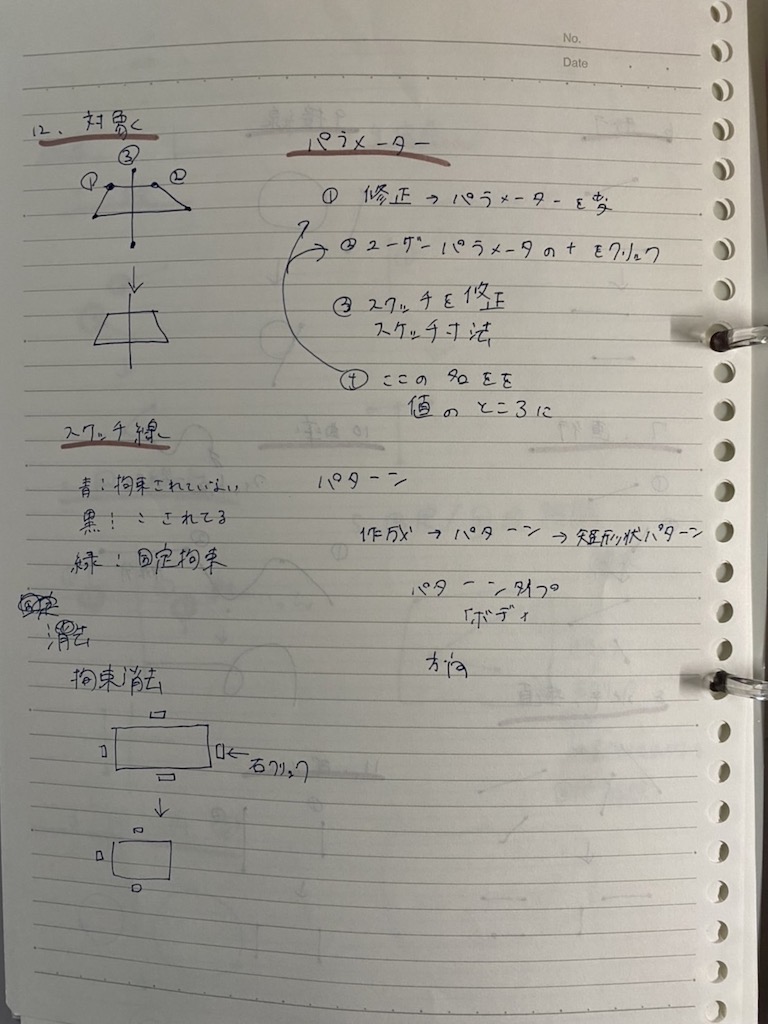 No.
Date
12. 対象
③
① ②
スケッチ線
青：拘束されていない
黒： 〃 されてる
緑：固定拘束
消去
拘束消去
←右クリック
パラメーター
① 修正 → パラメーターを変
② ユーザーパラメータの + をクリック
③ スケッチを修正
スケッチ寸法
④ ここの 名を
値のところに
パターン
作成 → パターン → 矩形状パターン
パターンタイプ
「ボディ
方向